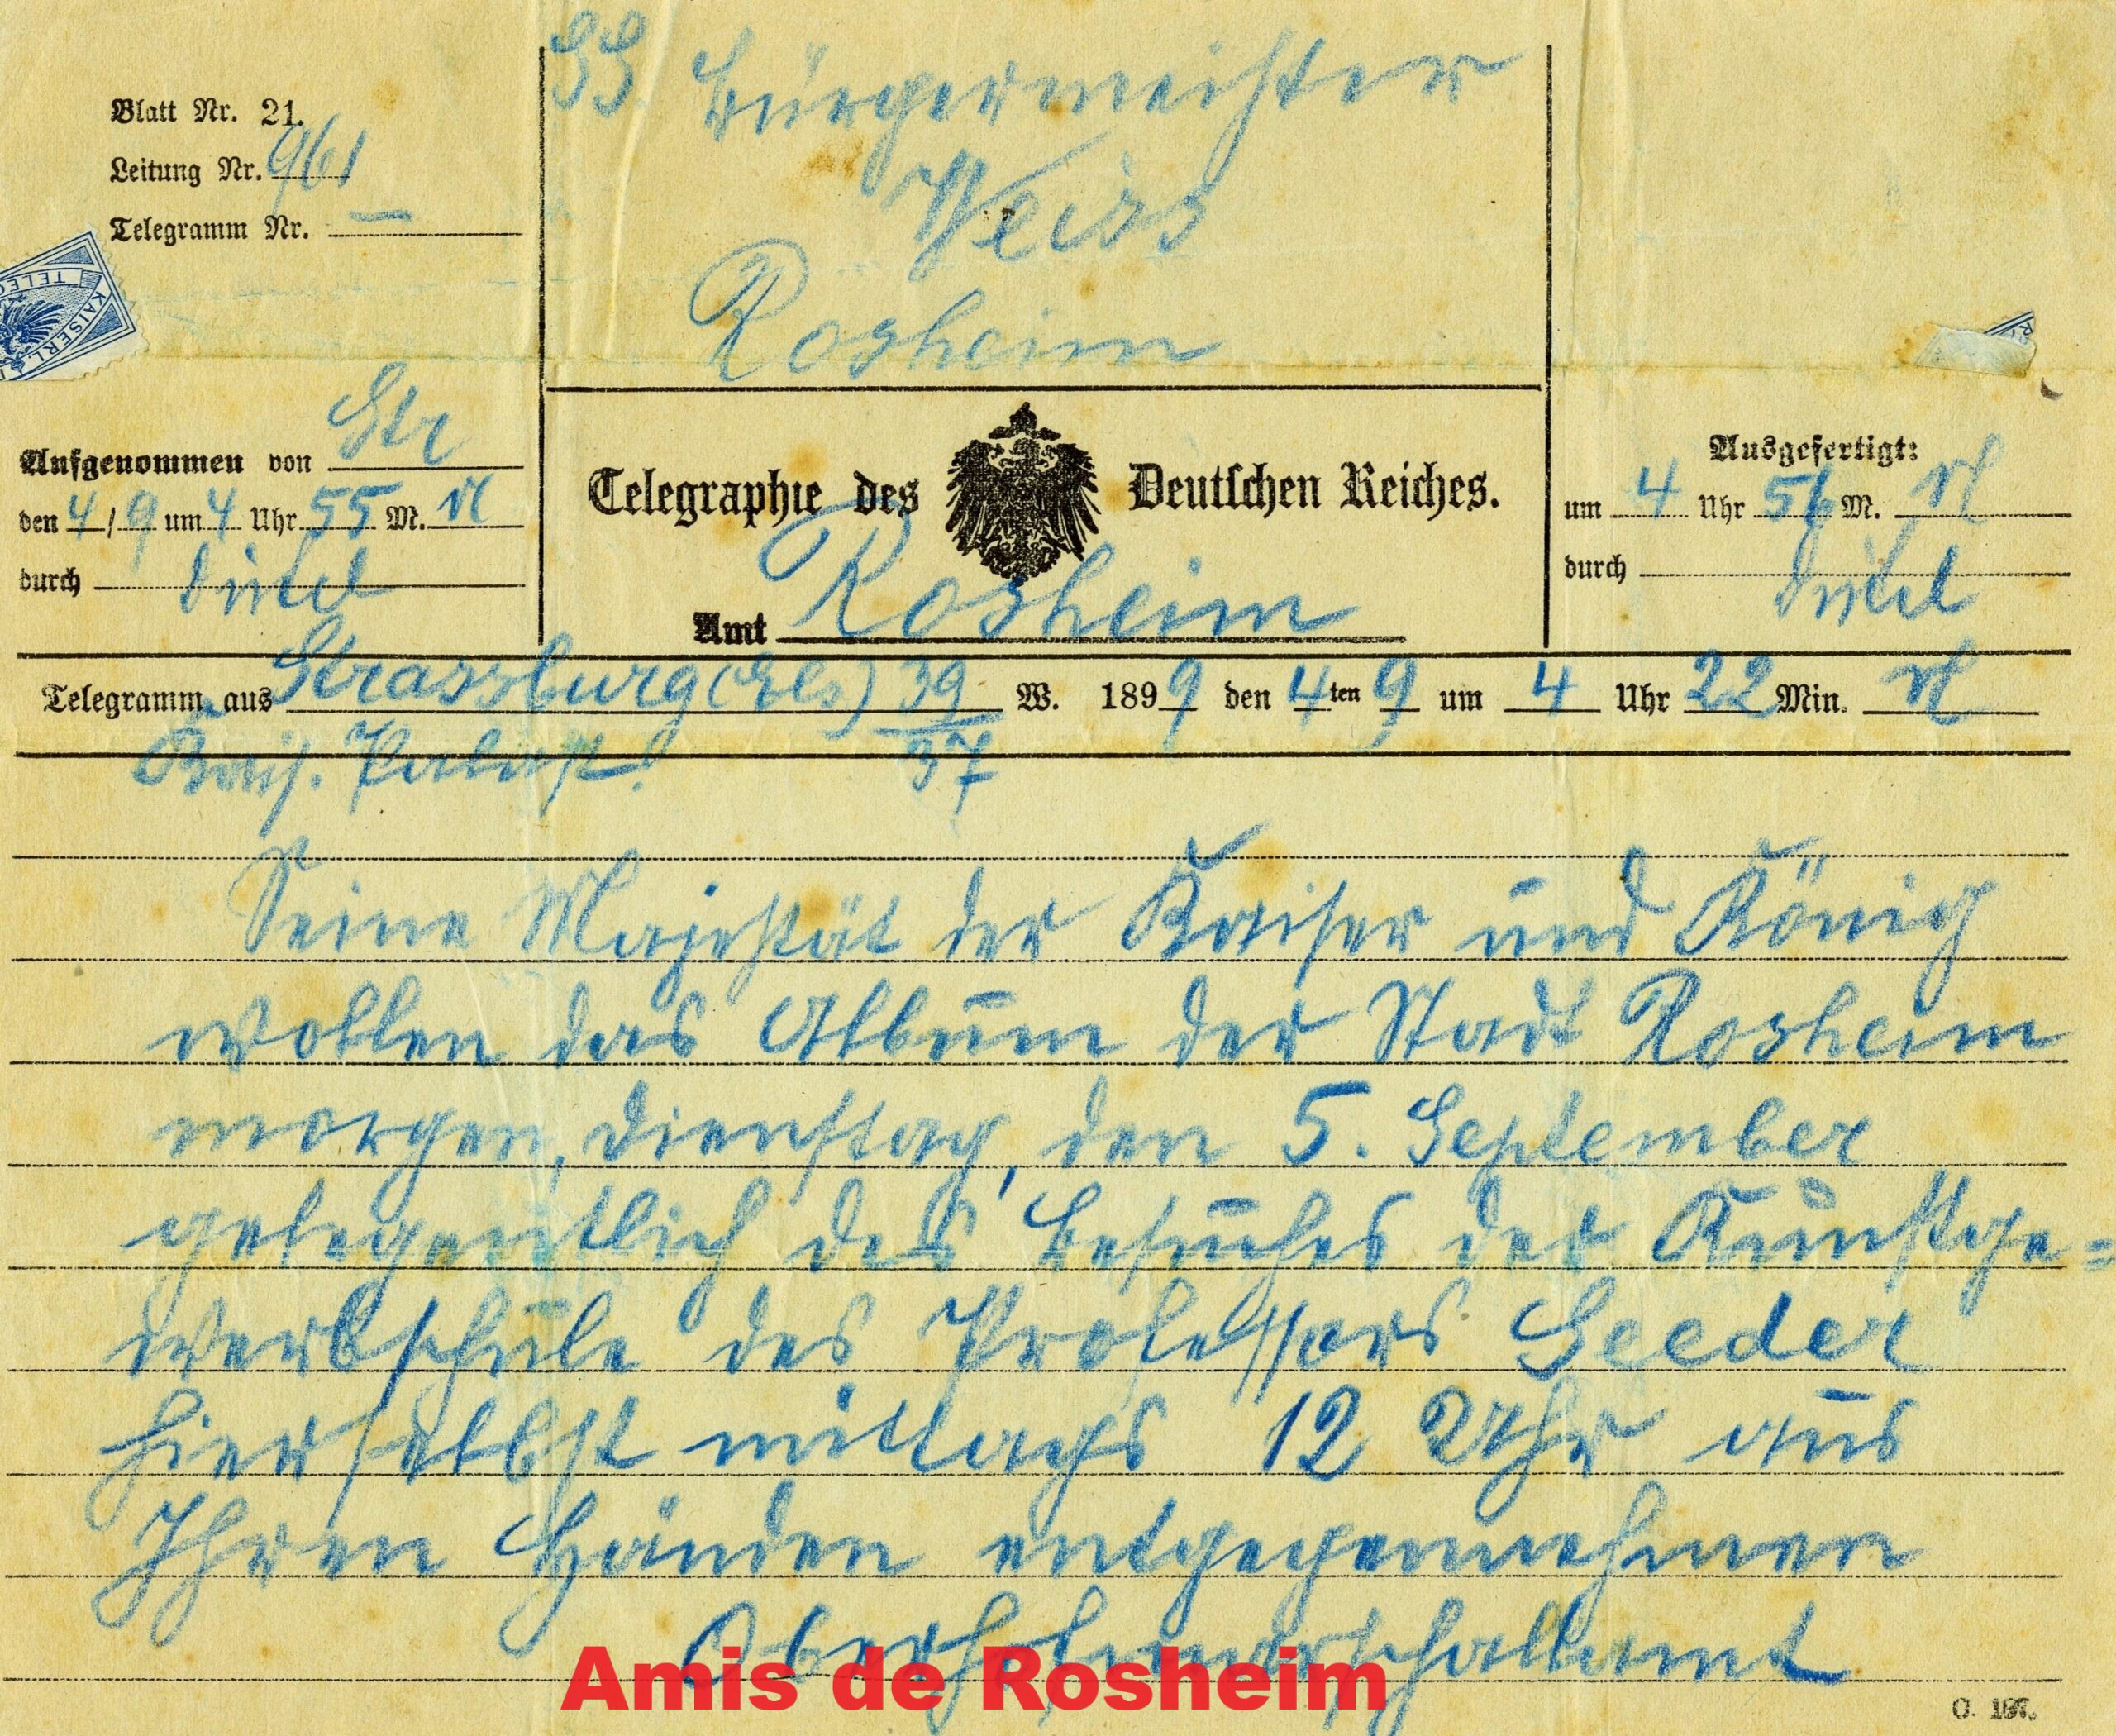 SS Bürgermeister
Weiss
Rosheim
Blatt Nr. 21.
Leitung Nr. 961
Telegramm Nr. —
TELEG
KAISERL.
Aufgenommen von Str
den 4/9 um 4 Uhr 55 M. N
durch
Telegraphie des Deutschen Reiches.
Amt Rosheim
Ausgefertigt:
um 4 Uhr 56 M. N
durch
Telegramm aus Strassburg (Els) 39 W. 1899 den 4ten 9 um 4 Uhr 22 Min. N
Kais. Palast. 37
Seine Majestät der Kaiser und König
wollen das Album der Stadt Rosheim
morgen, Dienstag, den 5. September
gelegentlich des Besuches der Kunstge=
werbschule des Professors Seeder
hierselbst mittags 12 Uhr aus
Ihren Händen entgegennehmen
Oberhofmarschallamt
Amis de Rosheim
C. 187.